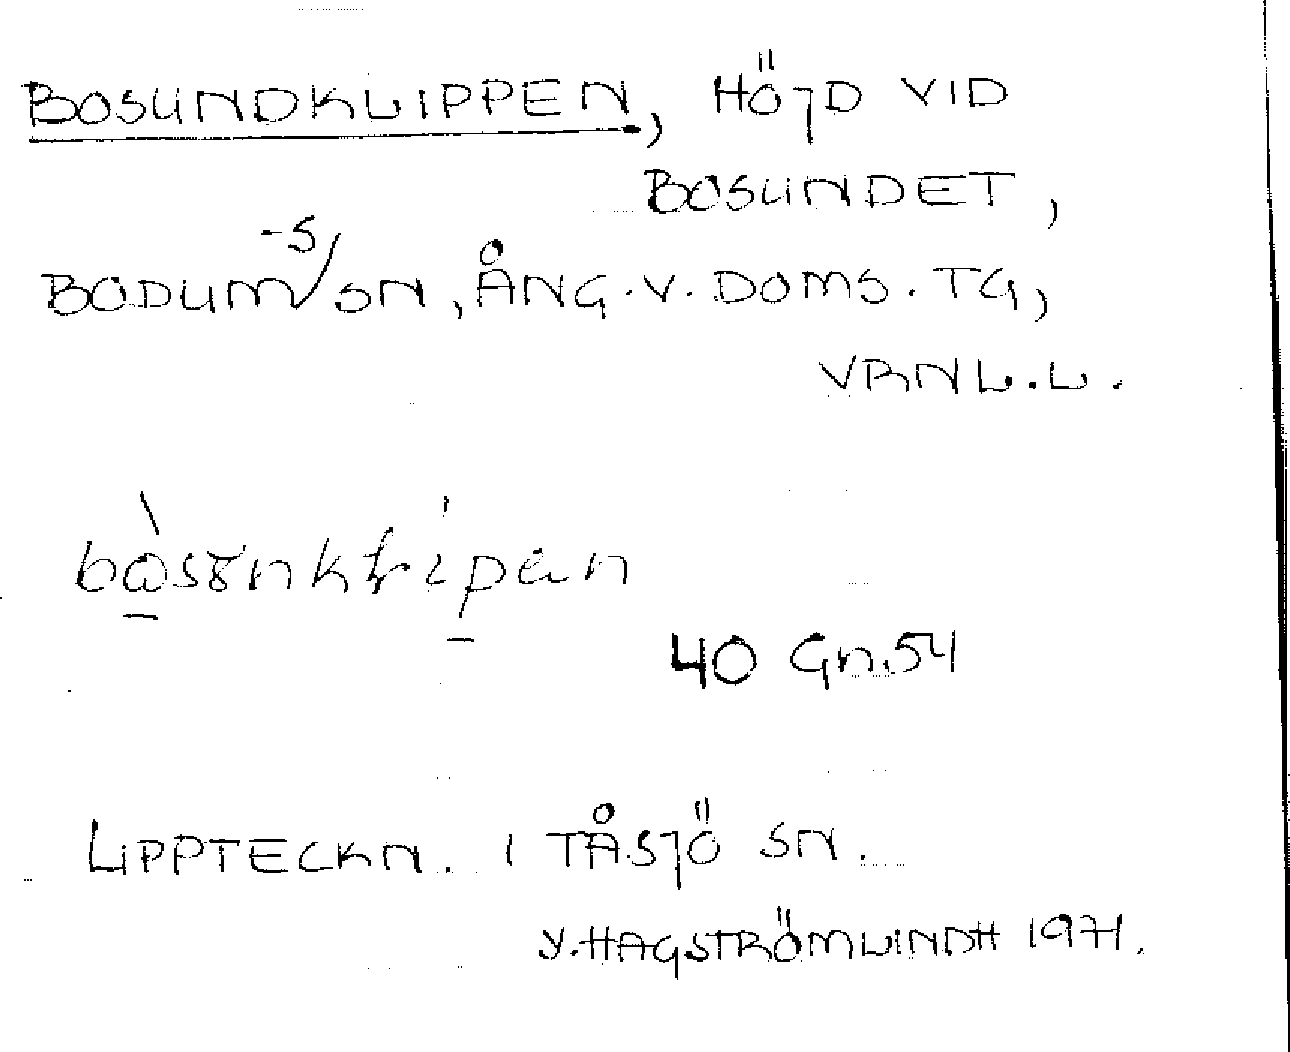 BOSUNDKLIPPEN, HÖJD VID
BOSUNDET,
BODUM-S/SN, ÅNG.V.DOMS.TG,
VRNL.L.
40 Gn.54
UPPTECKN. I TÅSJÖ SN.
Y.HAGSTRÖMLINDH 1971.